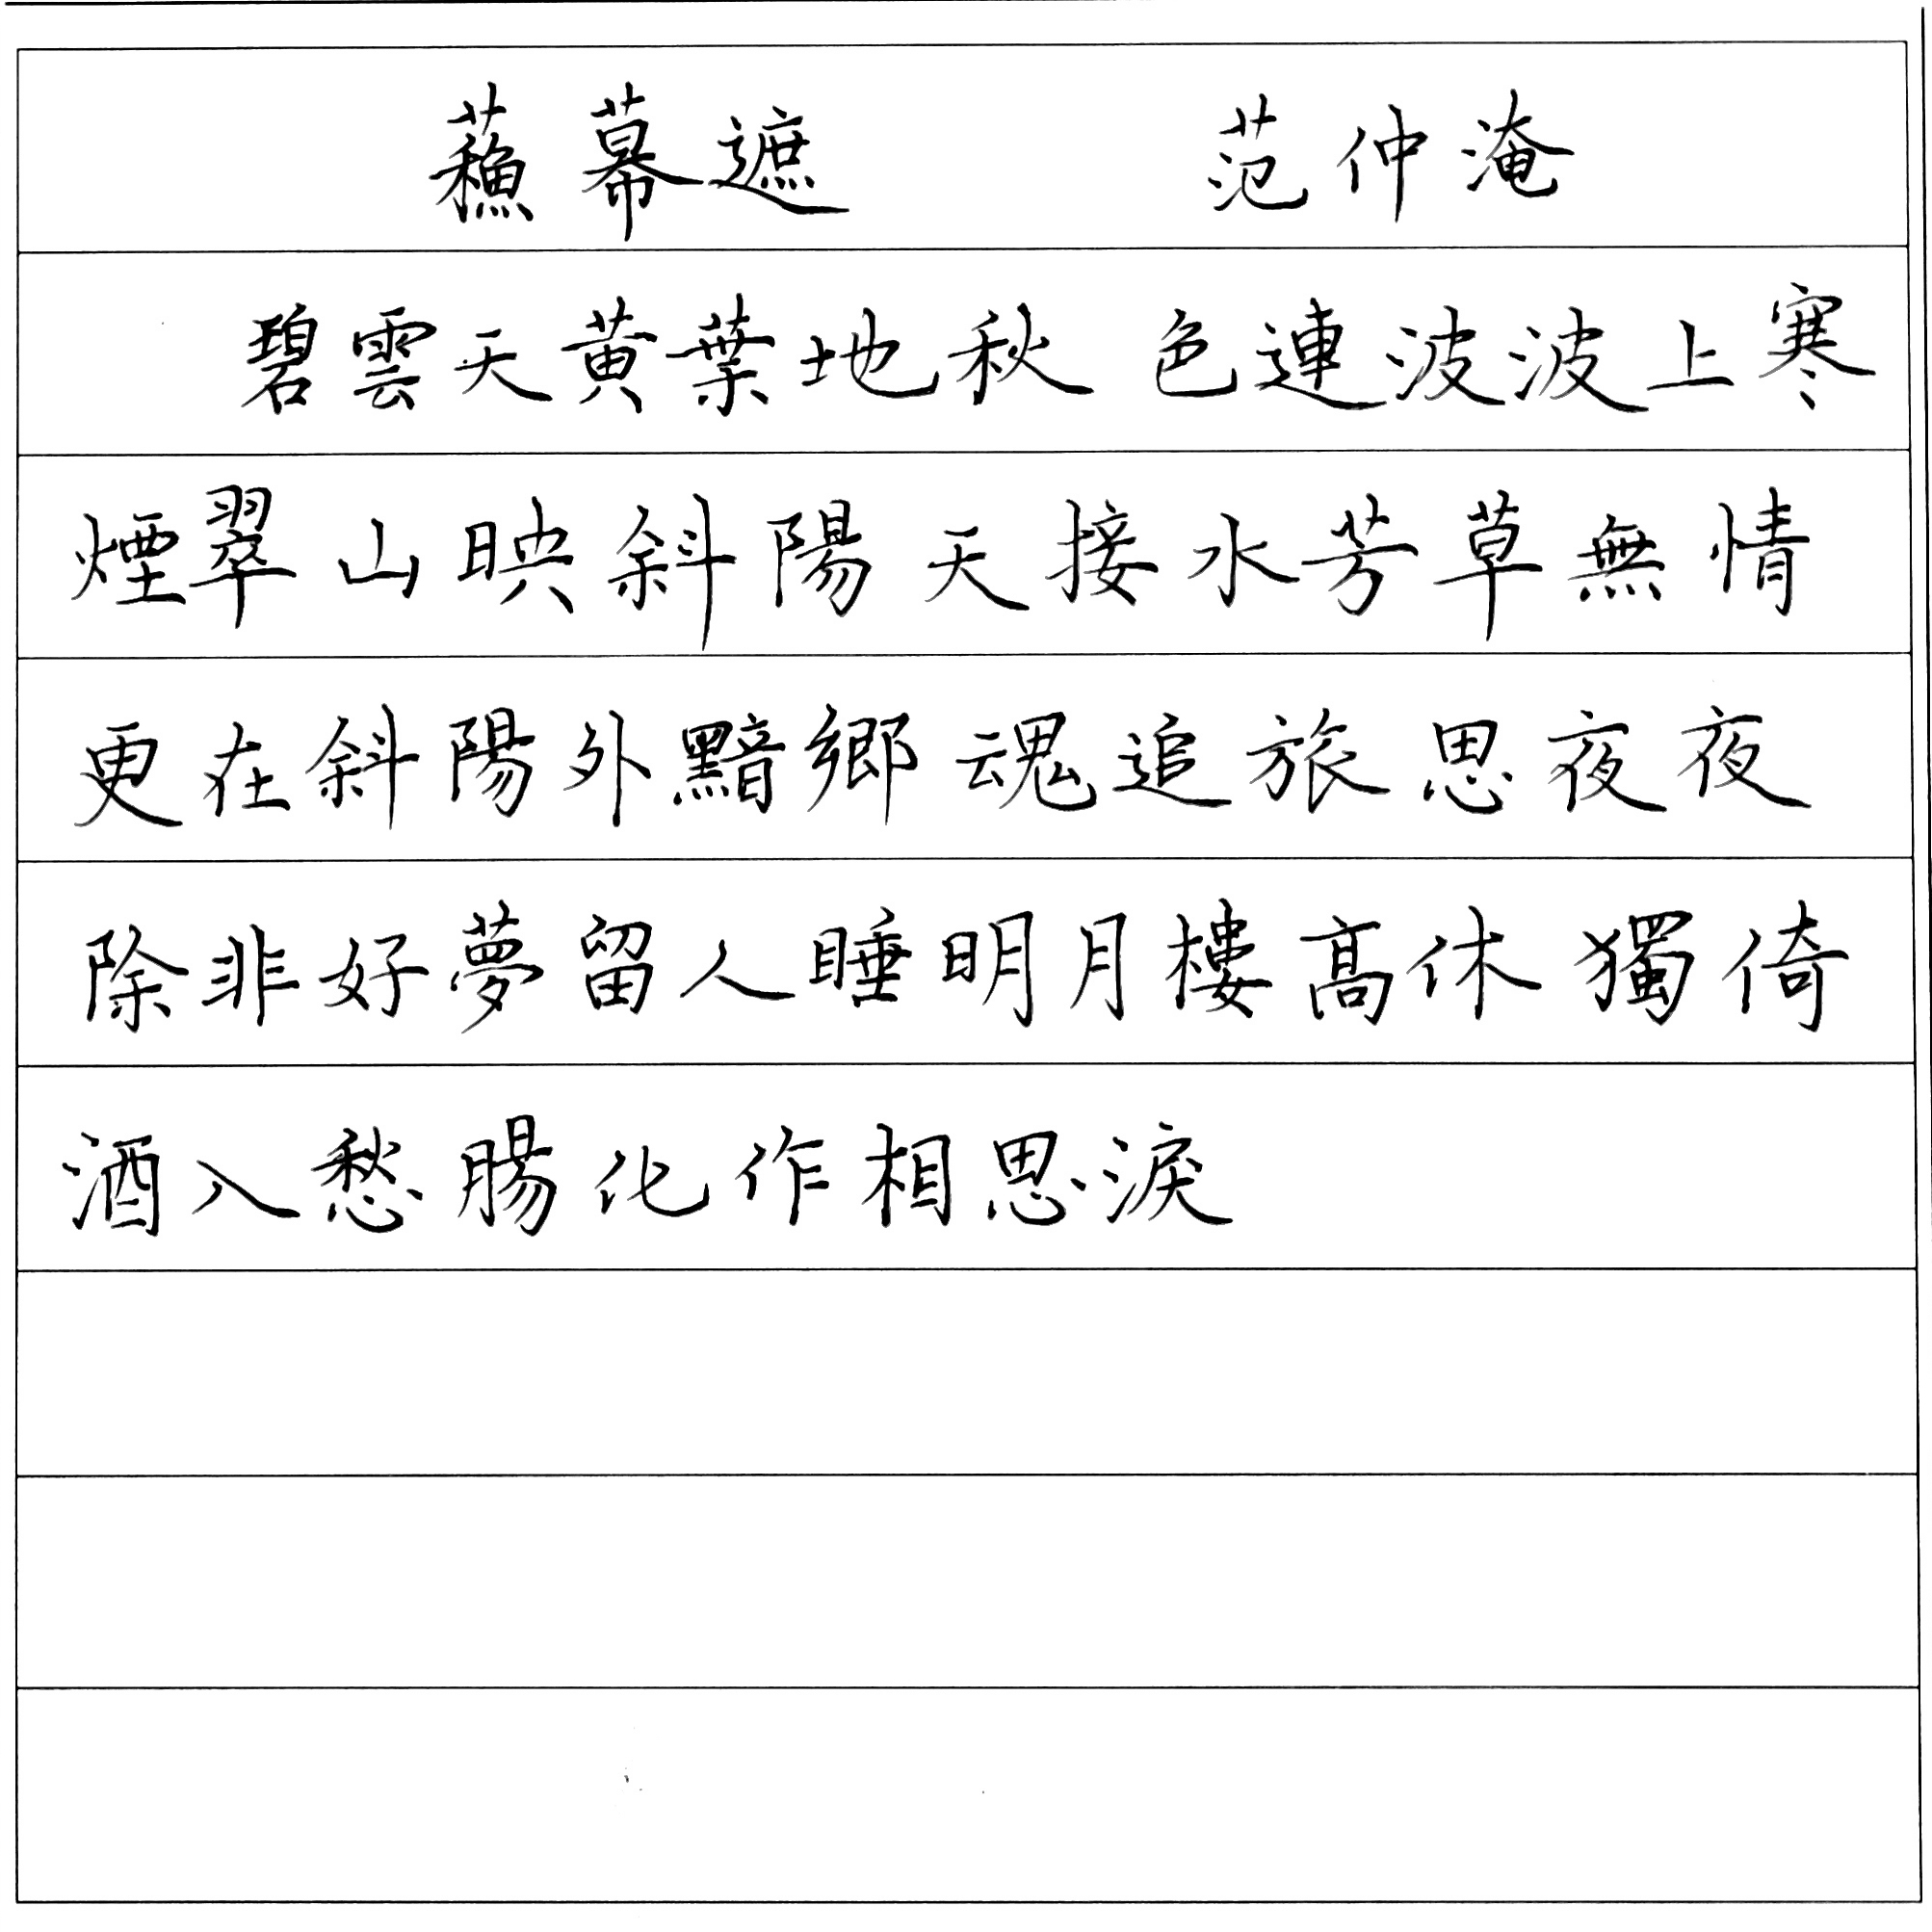 蘓幕遮 范仲淹
碧雲天黄葉地秋色連波波上寒
煙翠山映斜陽天接水芳草無情
更在斜陽外黯鄉魂追旅思夜夜
除非好夢留人睡明月樓高休獨倚
酒入愁腸化作相思淚